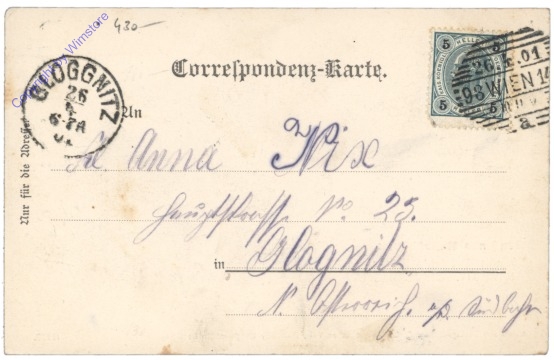 430-
Copyright by Wimstore
Correspondenz-Karte.
5 HELLER 5
5 5
26. X. 01
93 WIEN
a
GLOGGNITZ
26
6-7A
01
An
Anna Nix
Hauptstrasse No 25.
in Glognitz
N. Österreich. a/d Südbahn
Nur für die Adresse